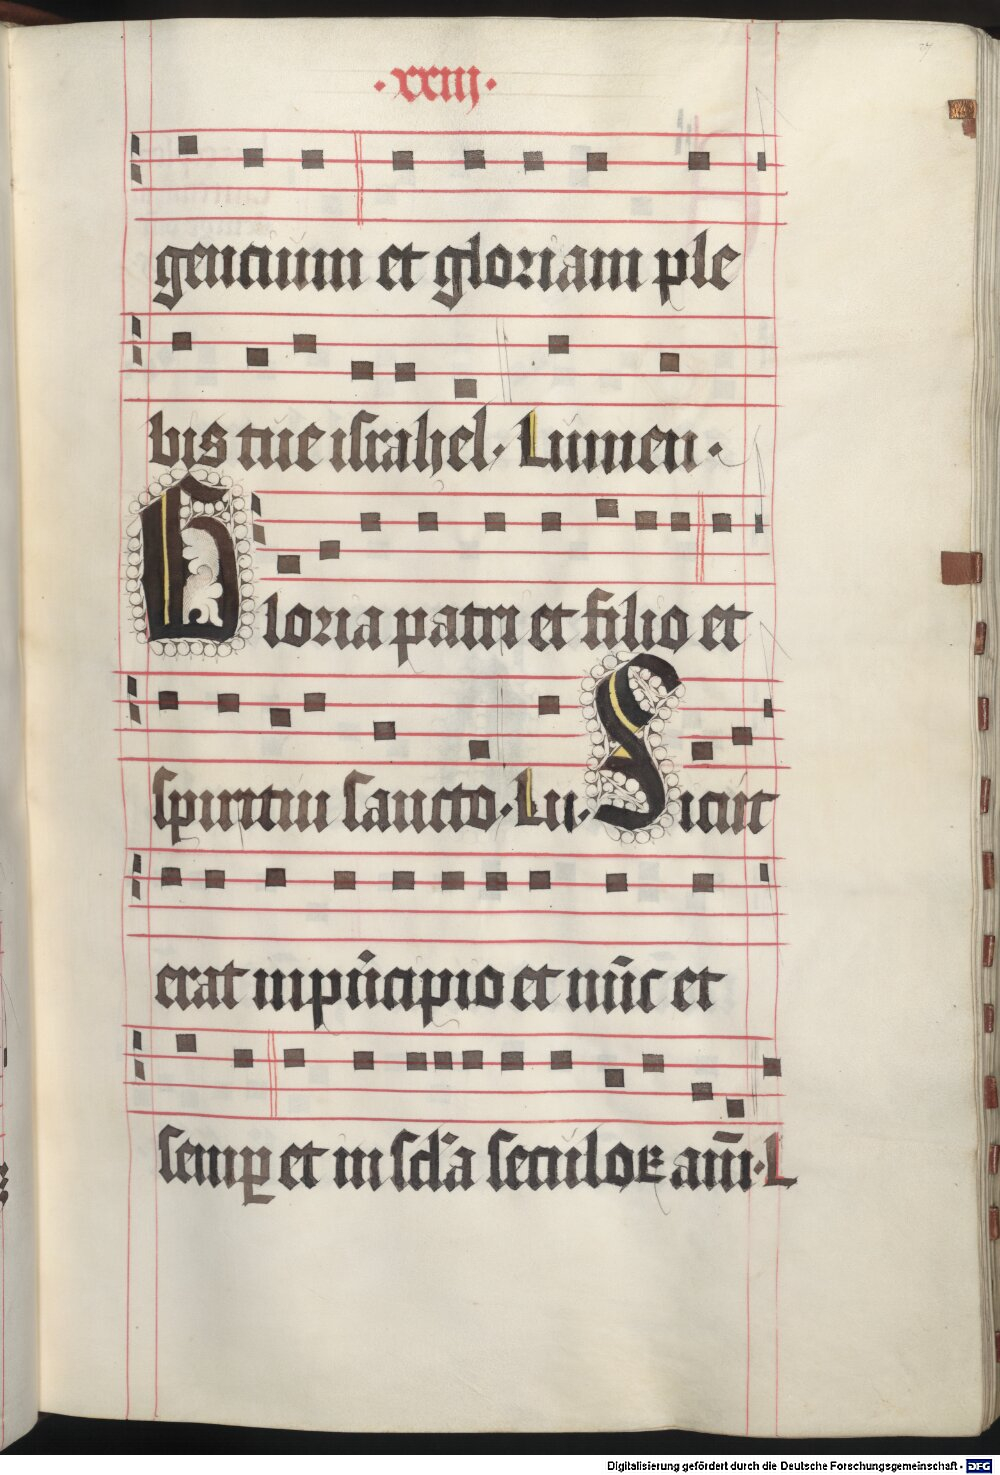 ·xxiij·
gentium et gloriam ple
bis tue israhel· Lumen·
Gloria patri et filio et
spiritui sancto· Lu· Sicut
erat in pricipio et nūc et
semꝑ et in scl'a seculoꝝ am̄· L
Digitalisierung gefördert durch die Deutsche Forschungsgemeinschaft - DFG